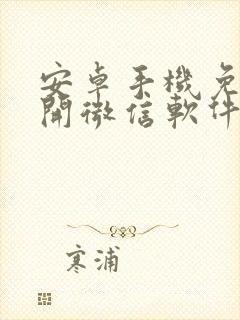 安卓手機免
開微信軟件
寒浦